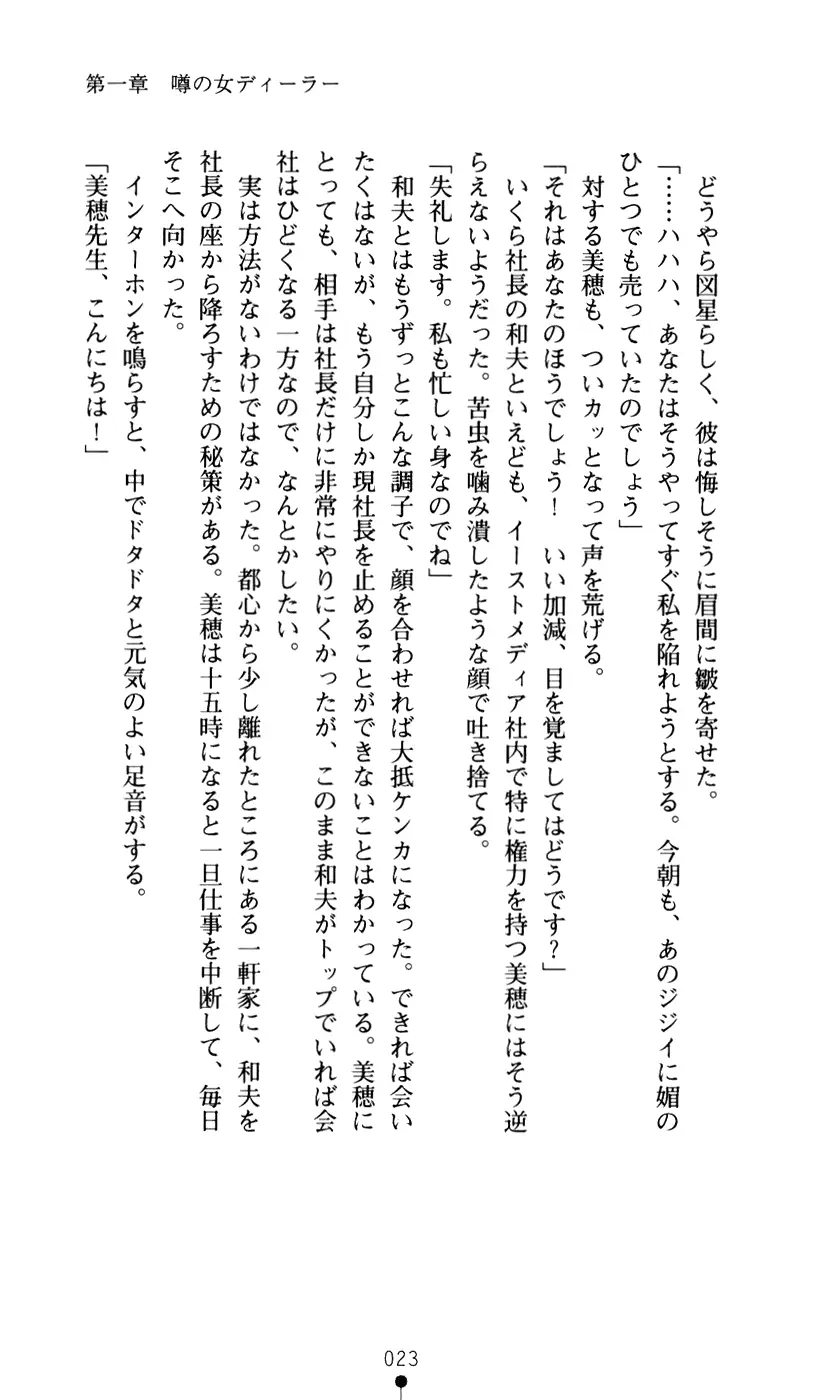 第一章　噂の女ディーラー
　どうやら図星らしく、彼は悔しそうに眉間に皺を寄せた。
「……ハハハ、あなたはそうやってすぐ私を陥れようとする。今朝も、あのジジイに媚の
ひとつでも売っていたのでしょう」
　対する美穂も、ついカッとなって声を荒げる。
「それはあなたのほうでしょう！　いい加減、目を覚ましてはどうです？」
　いくら社長の和夫といえども、イーストメディア社内で特に権力を持つ美穂にはそう逆
らえないようだった。苦虫を噛み潰したような顔で吐き捨てる。
「失礼します。私も忙しい身なのでね」
　和夫とはもうずっとこんな調子で、顔を合わせれば大抵ケンカになった。できれば会い
たくはないが、もう自分しか現社長を止めることができないことはわかっている。美穂に
とっても、相手は社長だけに非常にやりにくかったが、このまま和夫がトップでいれば会
社はひどくなる一方なので、なんとかしたい。
　実は方法がないわけではなかった。都心から少し離れたところにある一軒家に、和夫を
社長の座から降ろすための秘策がある。美穂は十五時になると一旦仕事を中断して、毎日
そこへ向かった。
　インターホンを鳴らすと、中でドタドタと元気のよい足音がする。
「美穂先生、こんにちは！」
023